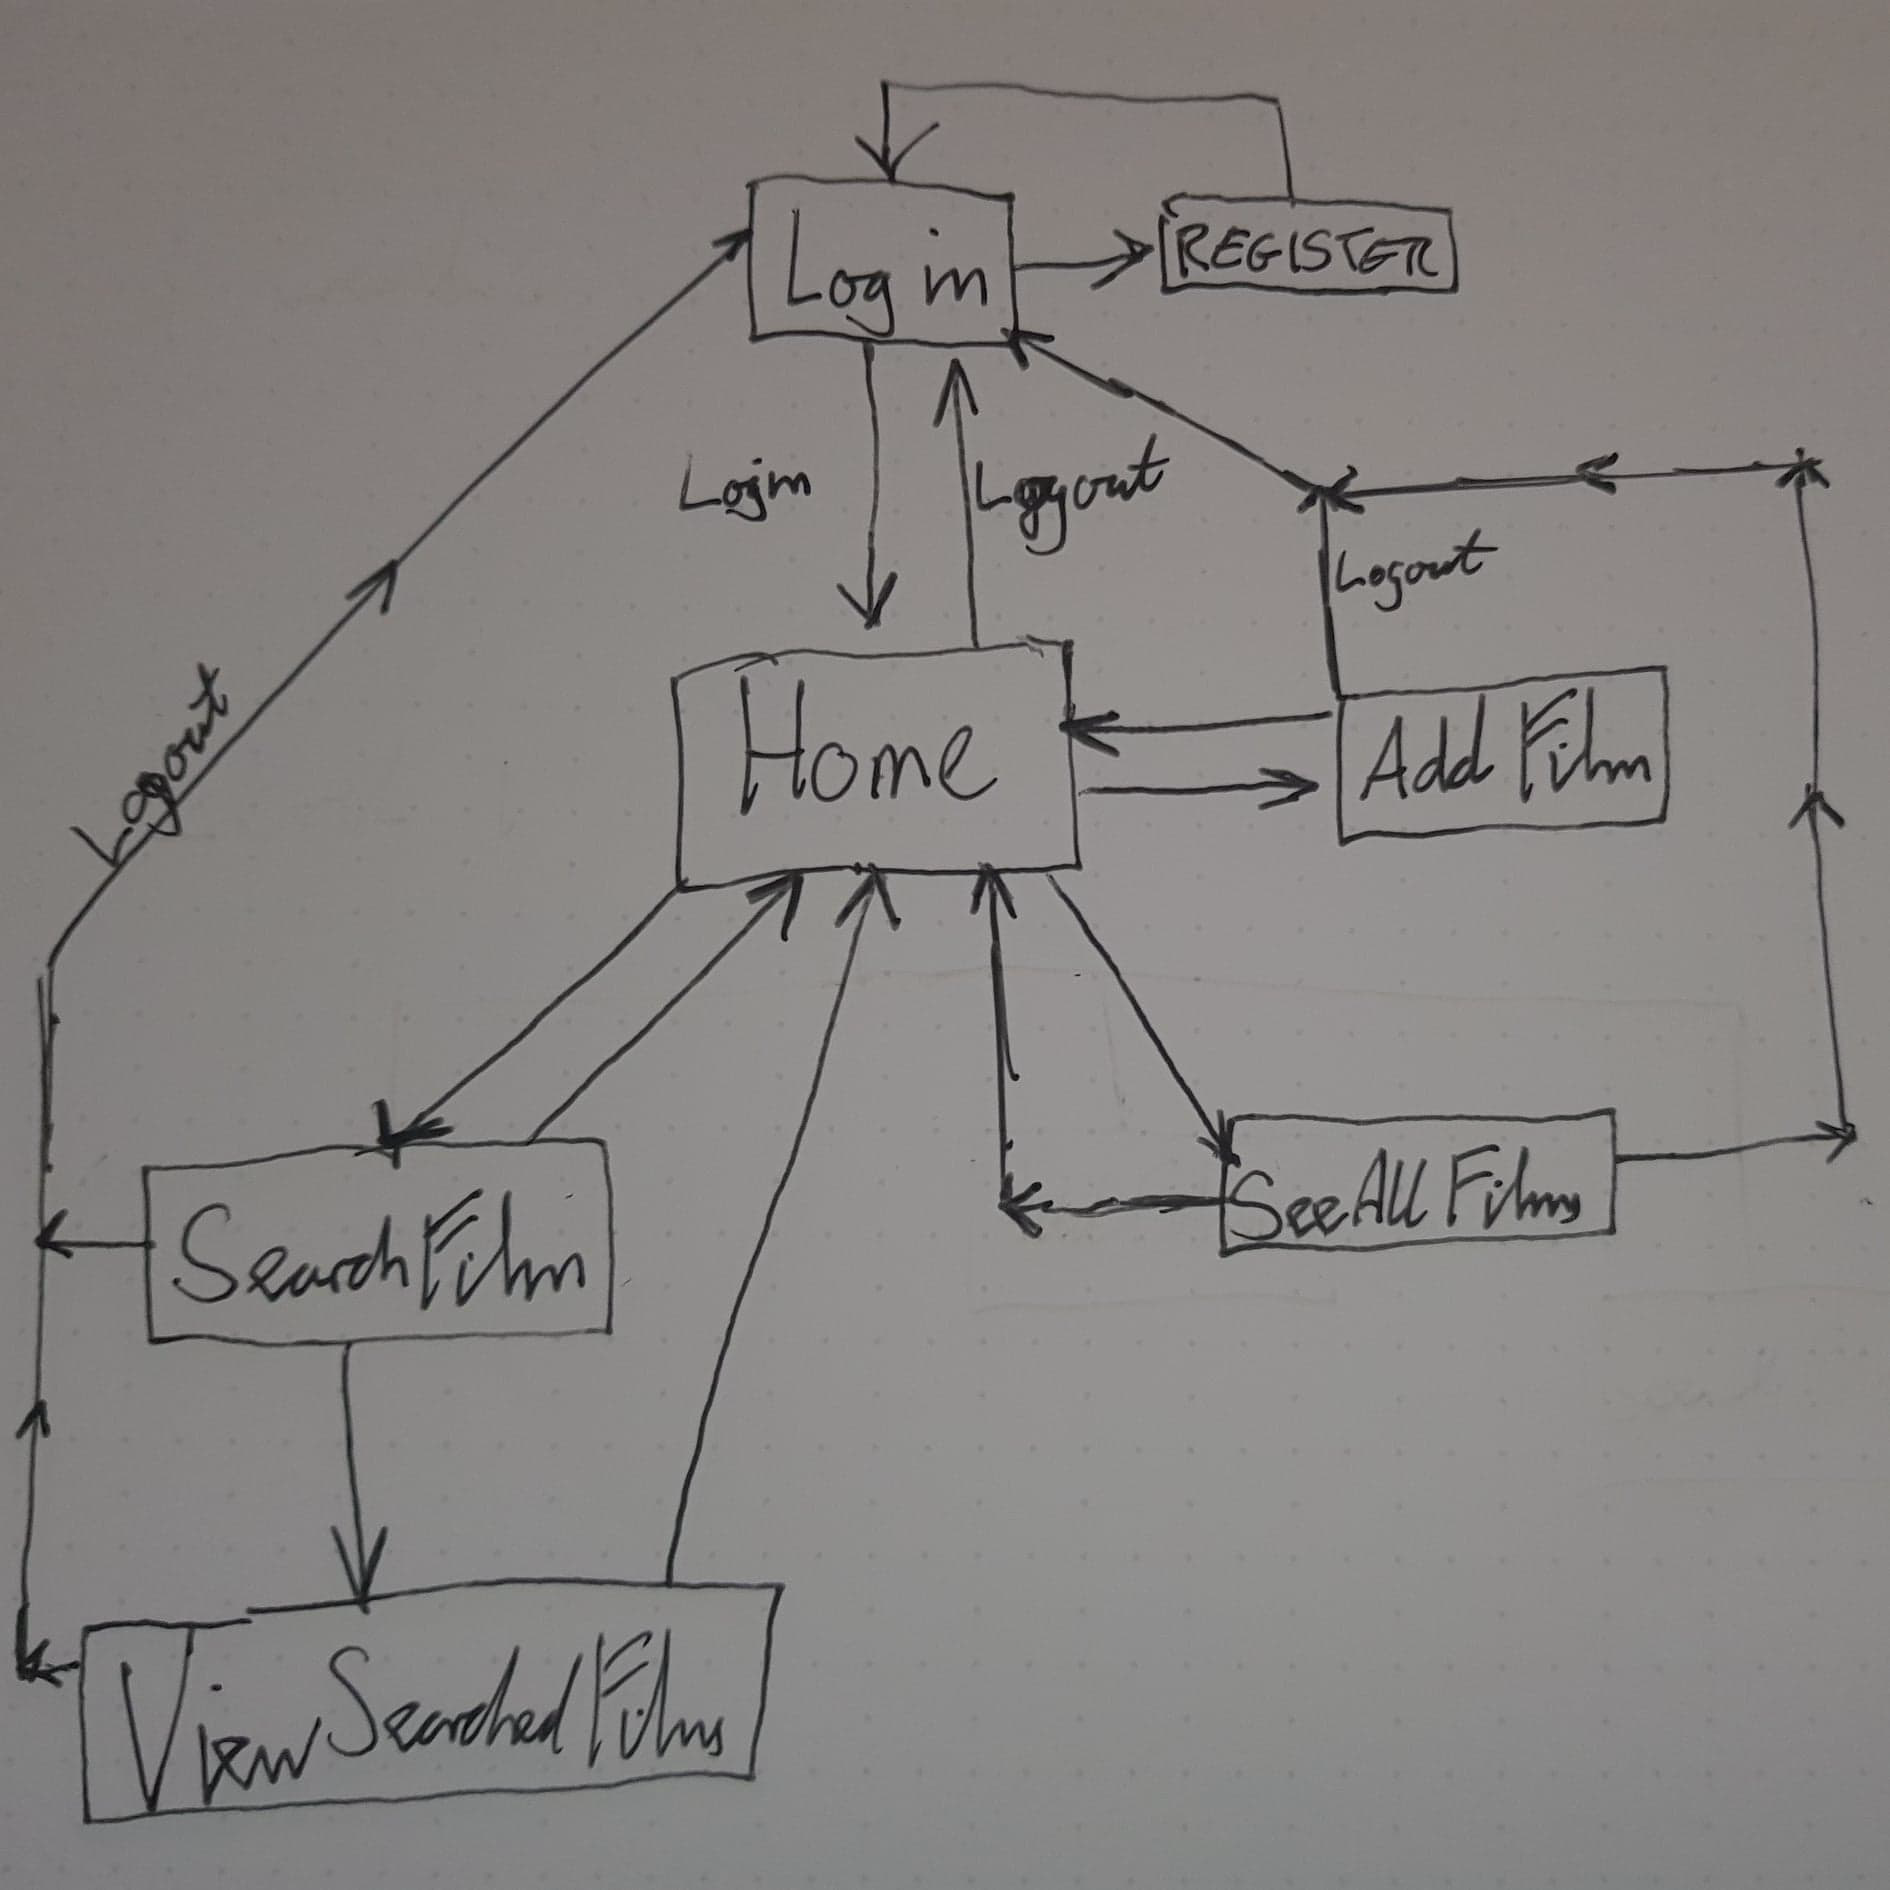 Log in
REGISTER
Login
Loggout
Logout
Logout
Home
Add Film
Search Film
See All Films
View Searched Films